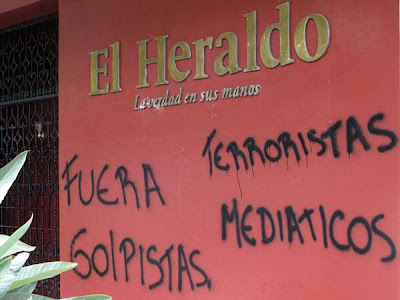 El Heraldo
La verdad en sus manos
FUERA
GOLPISTAS
TERRORISTAS
MEDIATICOS